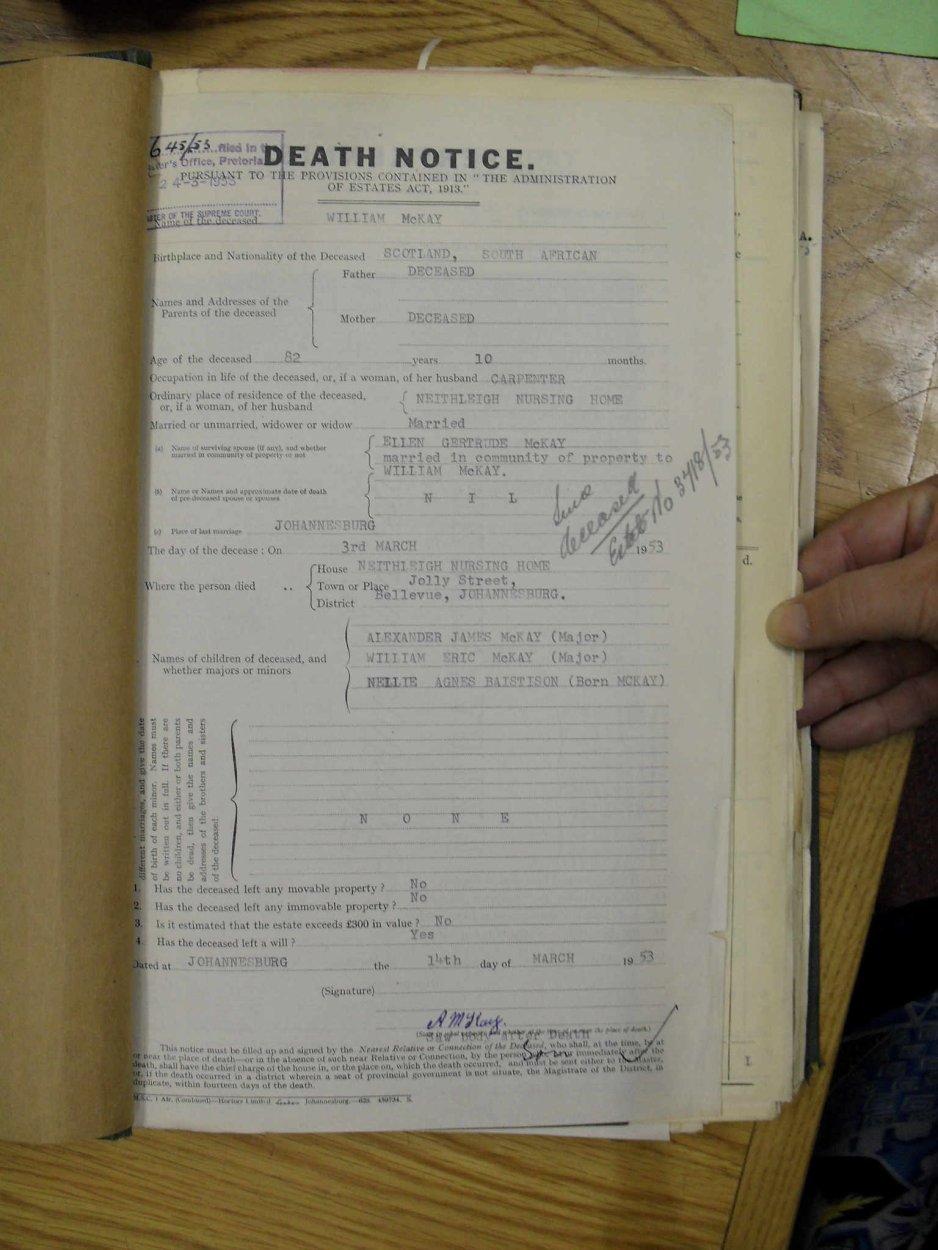 645/53 filed in
Office, Pretoria
24-3-1953
OF THE SUPREME COURT.
DEATH NOTICE.
PURSUANT TO THE PROVISIONS CONTAINED IN "THE ADMINISTRATION
OF ESTATES ACT, 1913."
Name of the deceased WILLIAM McKAY
Birthplace and Nationality of the Deceased SCOTLAND, SOUTH AFRICAN
Father DECEASED
Names and Addresses of the
Parents of the deceased
Mother DECEASED
Age of the deceased 82 years 10 months.
Occupation in life of the deceased, or, if a woman, of her husband CARPENTER
Ordinary place of residence of the deceased,
or, if a woman, of her husband NEITHLEIGH NURSING HOME
Married or unmarried, widower or widow Married
(a) Name of surviving spouse (if any), and whether
married in community of property or not
ELLEN GERTRUDE McKAY
married in community of property to
WILLIAM McKAY.
(b) Name or Names and approximate date of death
of pre-deceased spouse or spouses
N I L
Since
deceased
Estate No 3718/53
(c) Place of last marriage JOHANNESBURG
The day of the decease: On 3rd MARCH 1953
House NEITHLEIGH NURSING HOME
Where the person died .. Town or Place Jolly Street,
District Bellevue, JOHANNESBURG.
ALEXANDER JAMES McKAY (Major)
Names of children of deceased, and
whether majors or minors
WILLIAM ERIC McKAY (Major)
NELLIE AGNES BAISTISON (Born MCKAY)
different marriages, and give the date
of birth of each minor. Names must
be written out in full. If there are
no children, and either or both parents
be dead, then give the names and
addresses of the brothers and sisters
of the deceased.
N O N E
1. Has the deceased left any movable property? No
2. Has the deceased left any immovable property? No
3. Is it estimated that the estate exceeds £300 in value? No
4. Has the deceased left a will? Yes
Dated at JOHANNESBURG the 14th day of MARCH 1953
(Signature)
A McKay.
Saw body after Death
This notice must be filled up and signed by the Nearest Relative or Connection of the Deceased, who shall, at the time, be at
or near the place of death—or in the absence of such near Relative or Connection, by the person who immediately after the
death, shall have the chief charge of the house in, or the place on, which the death occurred, and must be sent either to
or, if the death occurred in a district wherein a seat of provincial government is not situate, the Magistrate of the District, in
duplicate, within fourteen days of the death.
Johannesburg.
A.
d.
1